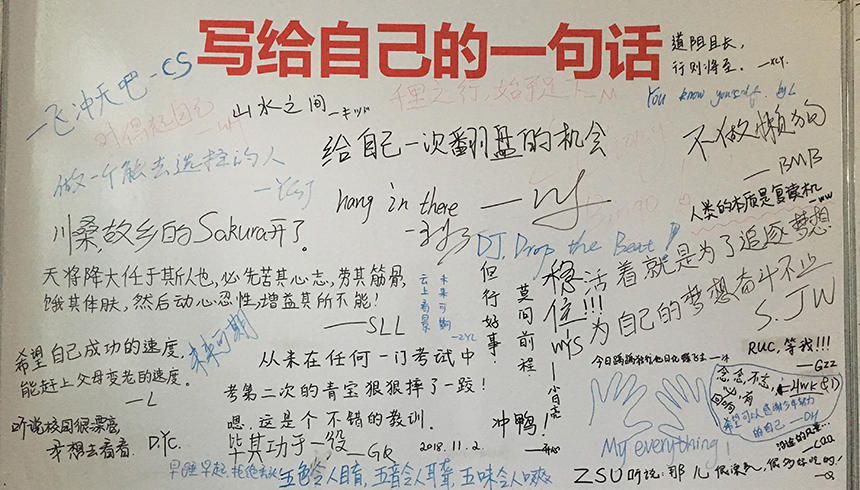 写给自己的一句话
道阻且长，
行则将至。
一飞冲天吧 — CS
对得起自己
山水之间
千里之行,始于足下 — M
You know yourself. by L
给自己一次翻盘的机会
不做懒狗
— BMB
做一个能去选择的人
— YCSJ
hang in there
人类的本质是复读机
— ww
川桑,故乡的Sakura开了。
DJ. Drop the Beat!
活着就是为了追逐梦想
为自己的梦想奋斗不止
S.JW
天将降大任于斯人也,必先苦其心志,劳其筋骨,
饿其体肤,然后动心忍性,增益其所不能!
— SLL
云上看景
未来可期
— ZYL
但行好事
莫问前程
稳住!!!
wys
未来可期
希望自己成功的速度,
能赶上父母变老的速度。
— L
从未在任何一门考试中
考第二次的青宝狠狠摔了一跤!
嗯.这是个不错的教训.
毕其功于一役 — GR
2018.11.2.
冲鸭!
RUC,等我!!!
— Gzz
念念不忘,
必有
回响
— HWK
希望可以感谢今年努力
的自己 — DH
听说校园很漂亮
想去看看. D.Yc.
My everything!
早睡早起,拒绝
五色令人目盲,五音令人耳聋,五味令人口爽
ZSU 听说:那儿很漂亮,很多好吃的!
— Q